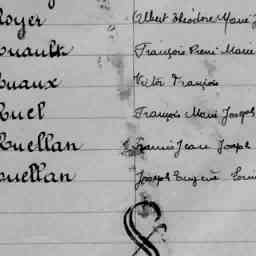 Royer Albert Théodore Marie J
Ruault François René Marie
Ruaux Victor François
Ruel François Marie Joseph
Ruellan Francis Jean Joseph
Ruellan Joseph Eugène Louis